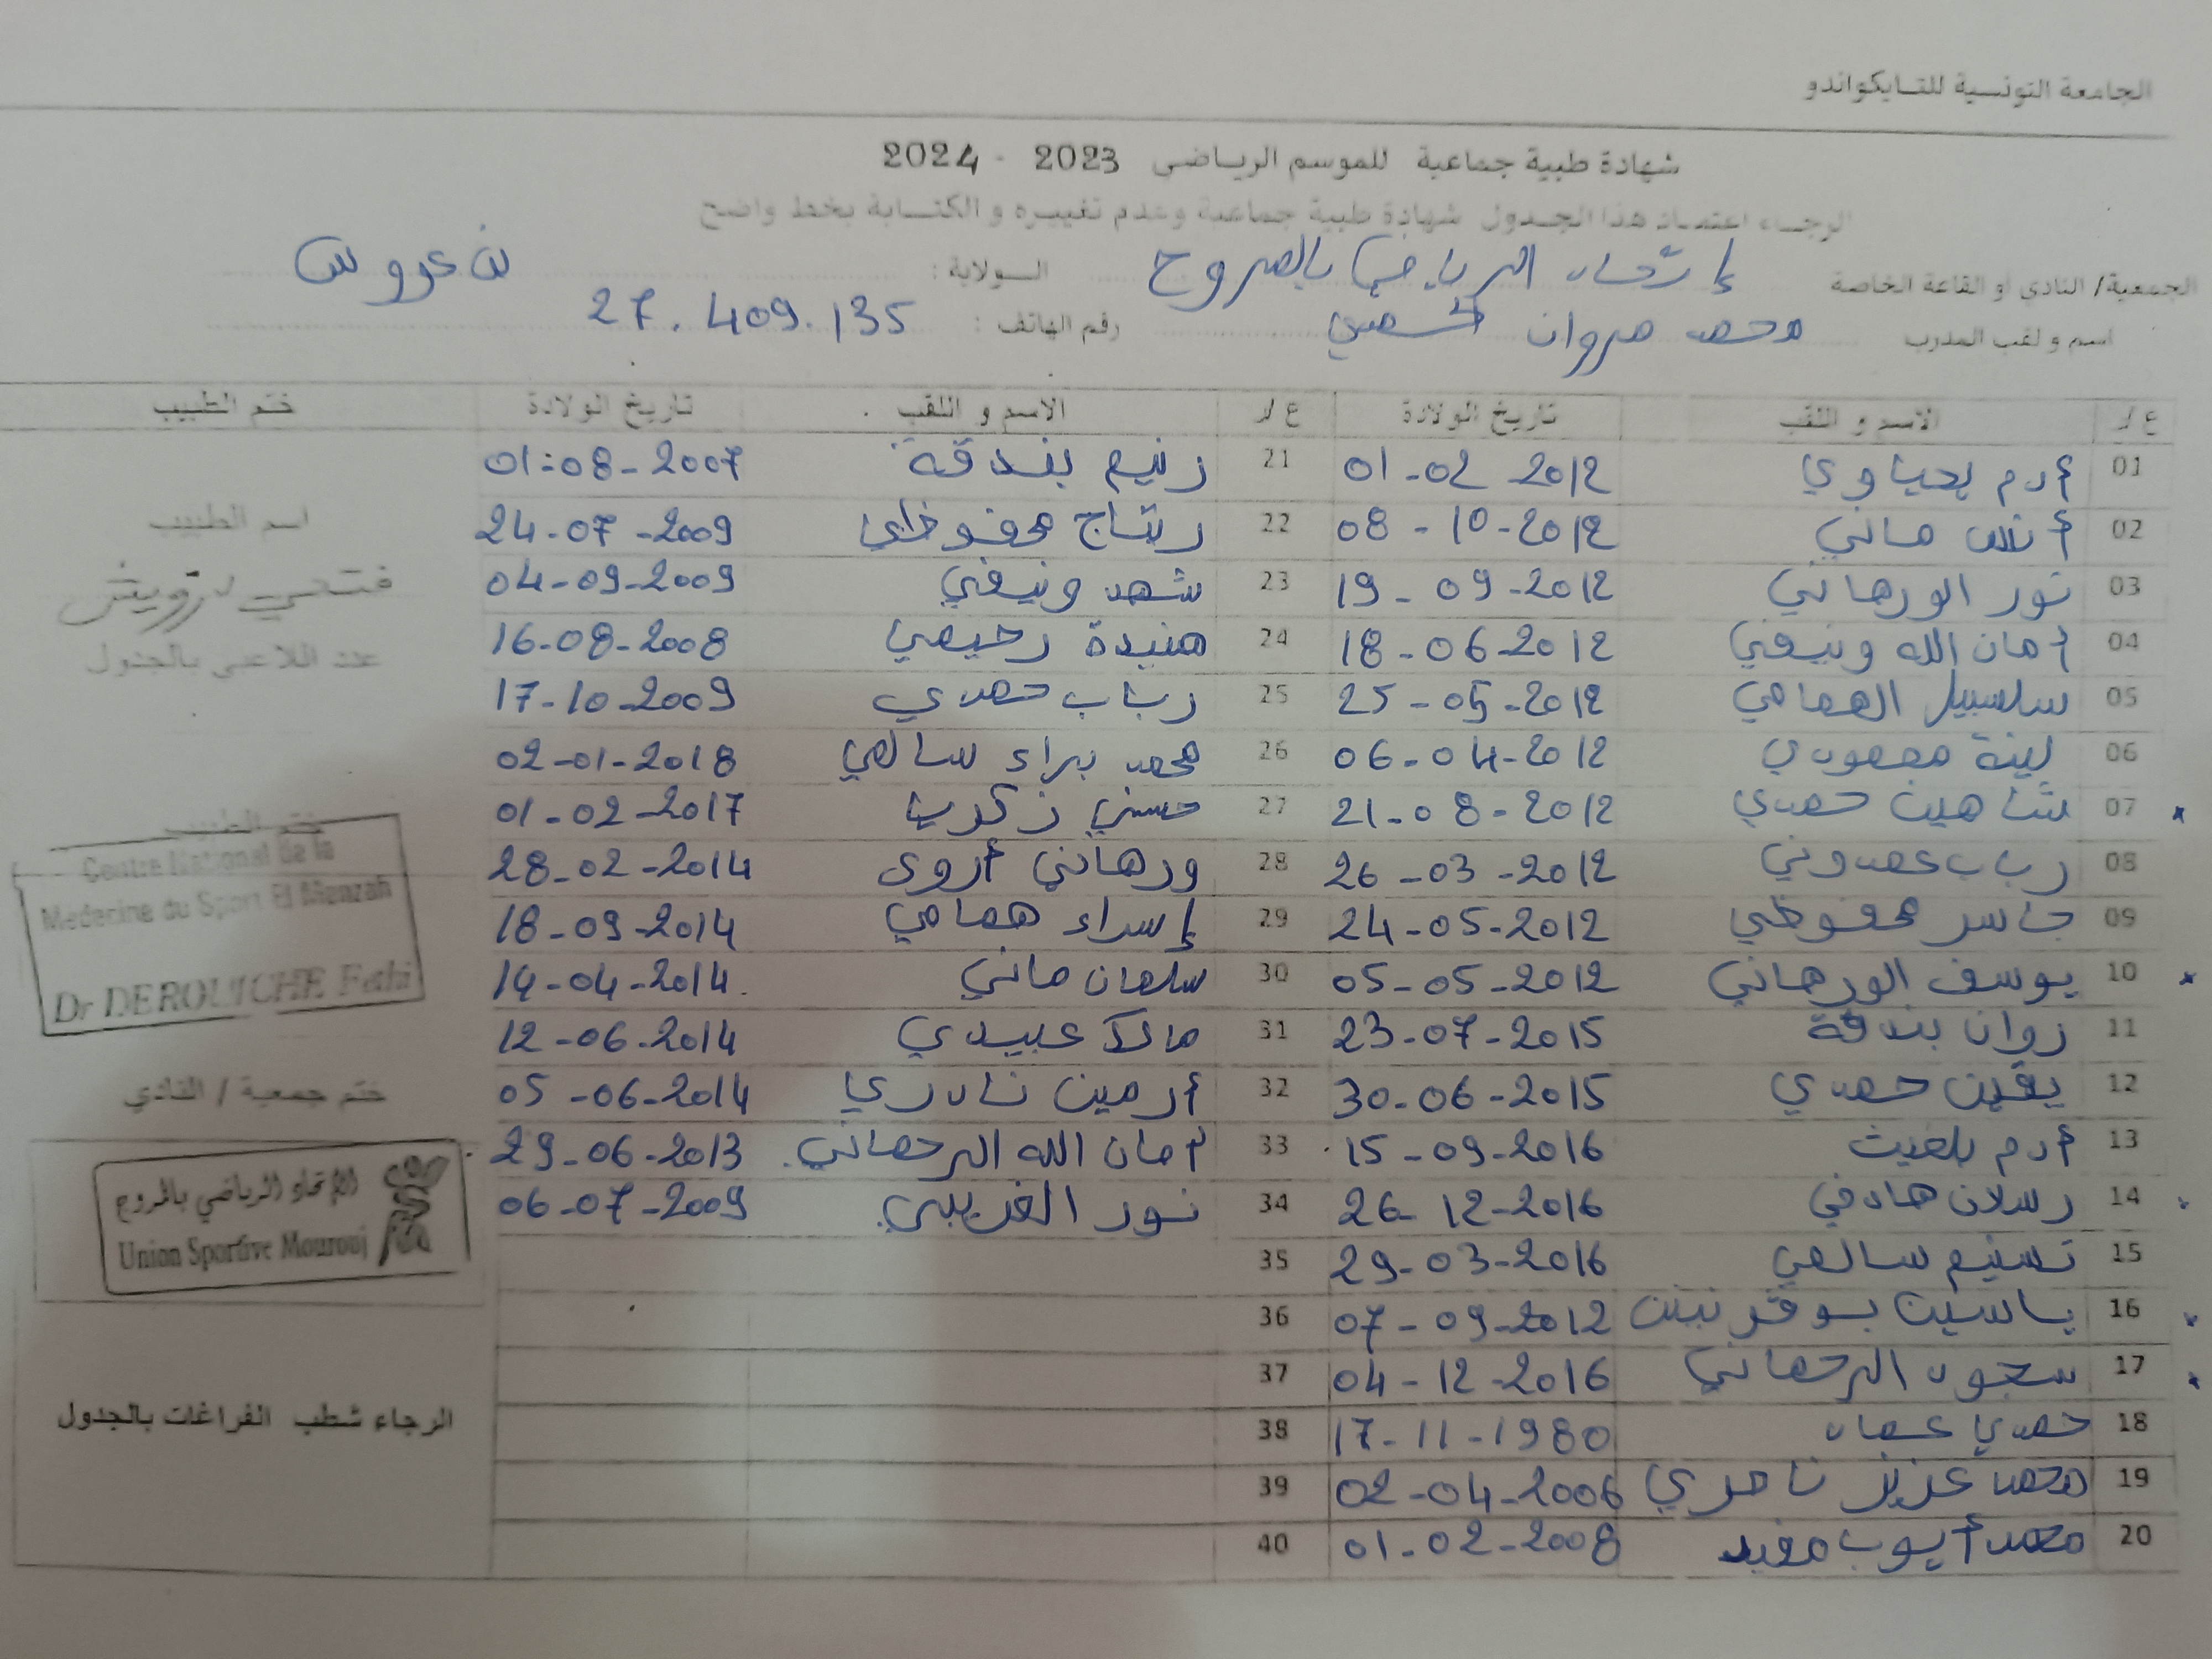 الجامعة التونسية للتايكواندو
شهادة طبية جماعية للموسم الرياضي 2023 - 2024
الرجاء اعتماد هذا الجدول شهادة طبية جماعية وعدم تغييره و الكتابة بخط واضح
الجمعية/ النادي او القاعة الخاصة إتحاد الرياضي بالمروج الولاية : بن عروس
اسم و لقب المدرب محمد مروان رقم الهاتف : 27.409.135
ع/ر الاسم و اللقب تاريخ الولادة ع/ر الاسم و اللقب تاريخ الولادة ختم الطبيب
01 أدم يحياوي 01-02-2012 21 زنيم بندقة 01-08-2007
02 أنس ماني 08-10-2012 22 رتاج محفوظي 24-07-2009
اسم الطبيب
03 نور الورهاني 19-09-2012 23 شهد ونيفي 04-09-2009
فتحي درويش
04 أمان الله ونيفي 18-06-2012 24 هنيدة رحيمي 16-08-2008
عدد اللاعبي بالجدول
05 سلسبيل الهمامي 25-05-2012 25 رباب حمدي 17-10-2009
06 لينة 06-04-2012 26 محمد براء سالمي 02-01-2018
07 شاهين حمدي 21-08-2012 27 حسني زكريا 01-02-2017
ختم الطبيب
Centre National de la
Médecine du Sport El Menzah
Dr DEROUICHE Fethi
08 رباب عمدوني 26-03-2012 28 ورهاني أروى 28-02-2014
09 جاسر محفوظي 24-05-2012 29 إسراء همامي 18-09-2014
10 يوسف الورهاني 05-05-2012 30 سلمان ماني 14-04-2014
11 روان بندقة 23-07-2015 31 مالك عبيدي 12-06-2014
12 يقين حمدي 30-06-2015 32 أرمين نادري 05-06-2014
ختم جمعية / النادي
13 أدم بلغيث 15-09-2016 33 أمان الله الرحماني 29-06-2013
14 رسلان هادفي 26-12-2016 34 نور الغريبي 06-07-2009
الإتحاد الرياضي بالمروج
Union Sportive Mourouj
15 تسنيم سالمي 29-03-2016 35
16 ياسين 07-09-2012 36
17 سجود الرحماني 04-12-2016 37
الرجاء شطب الفراغات بالجدول
18 حمدي عماد 17-11-1980 38
19 محمد عزيز 02-04-2006 39
20 محمد أيوب مفيد 01-02-2008 40